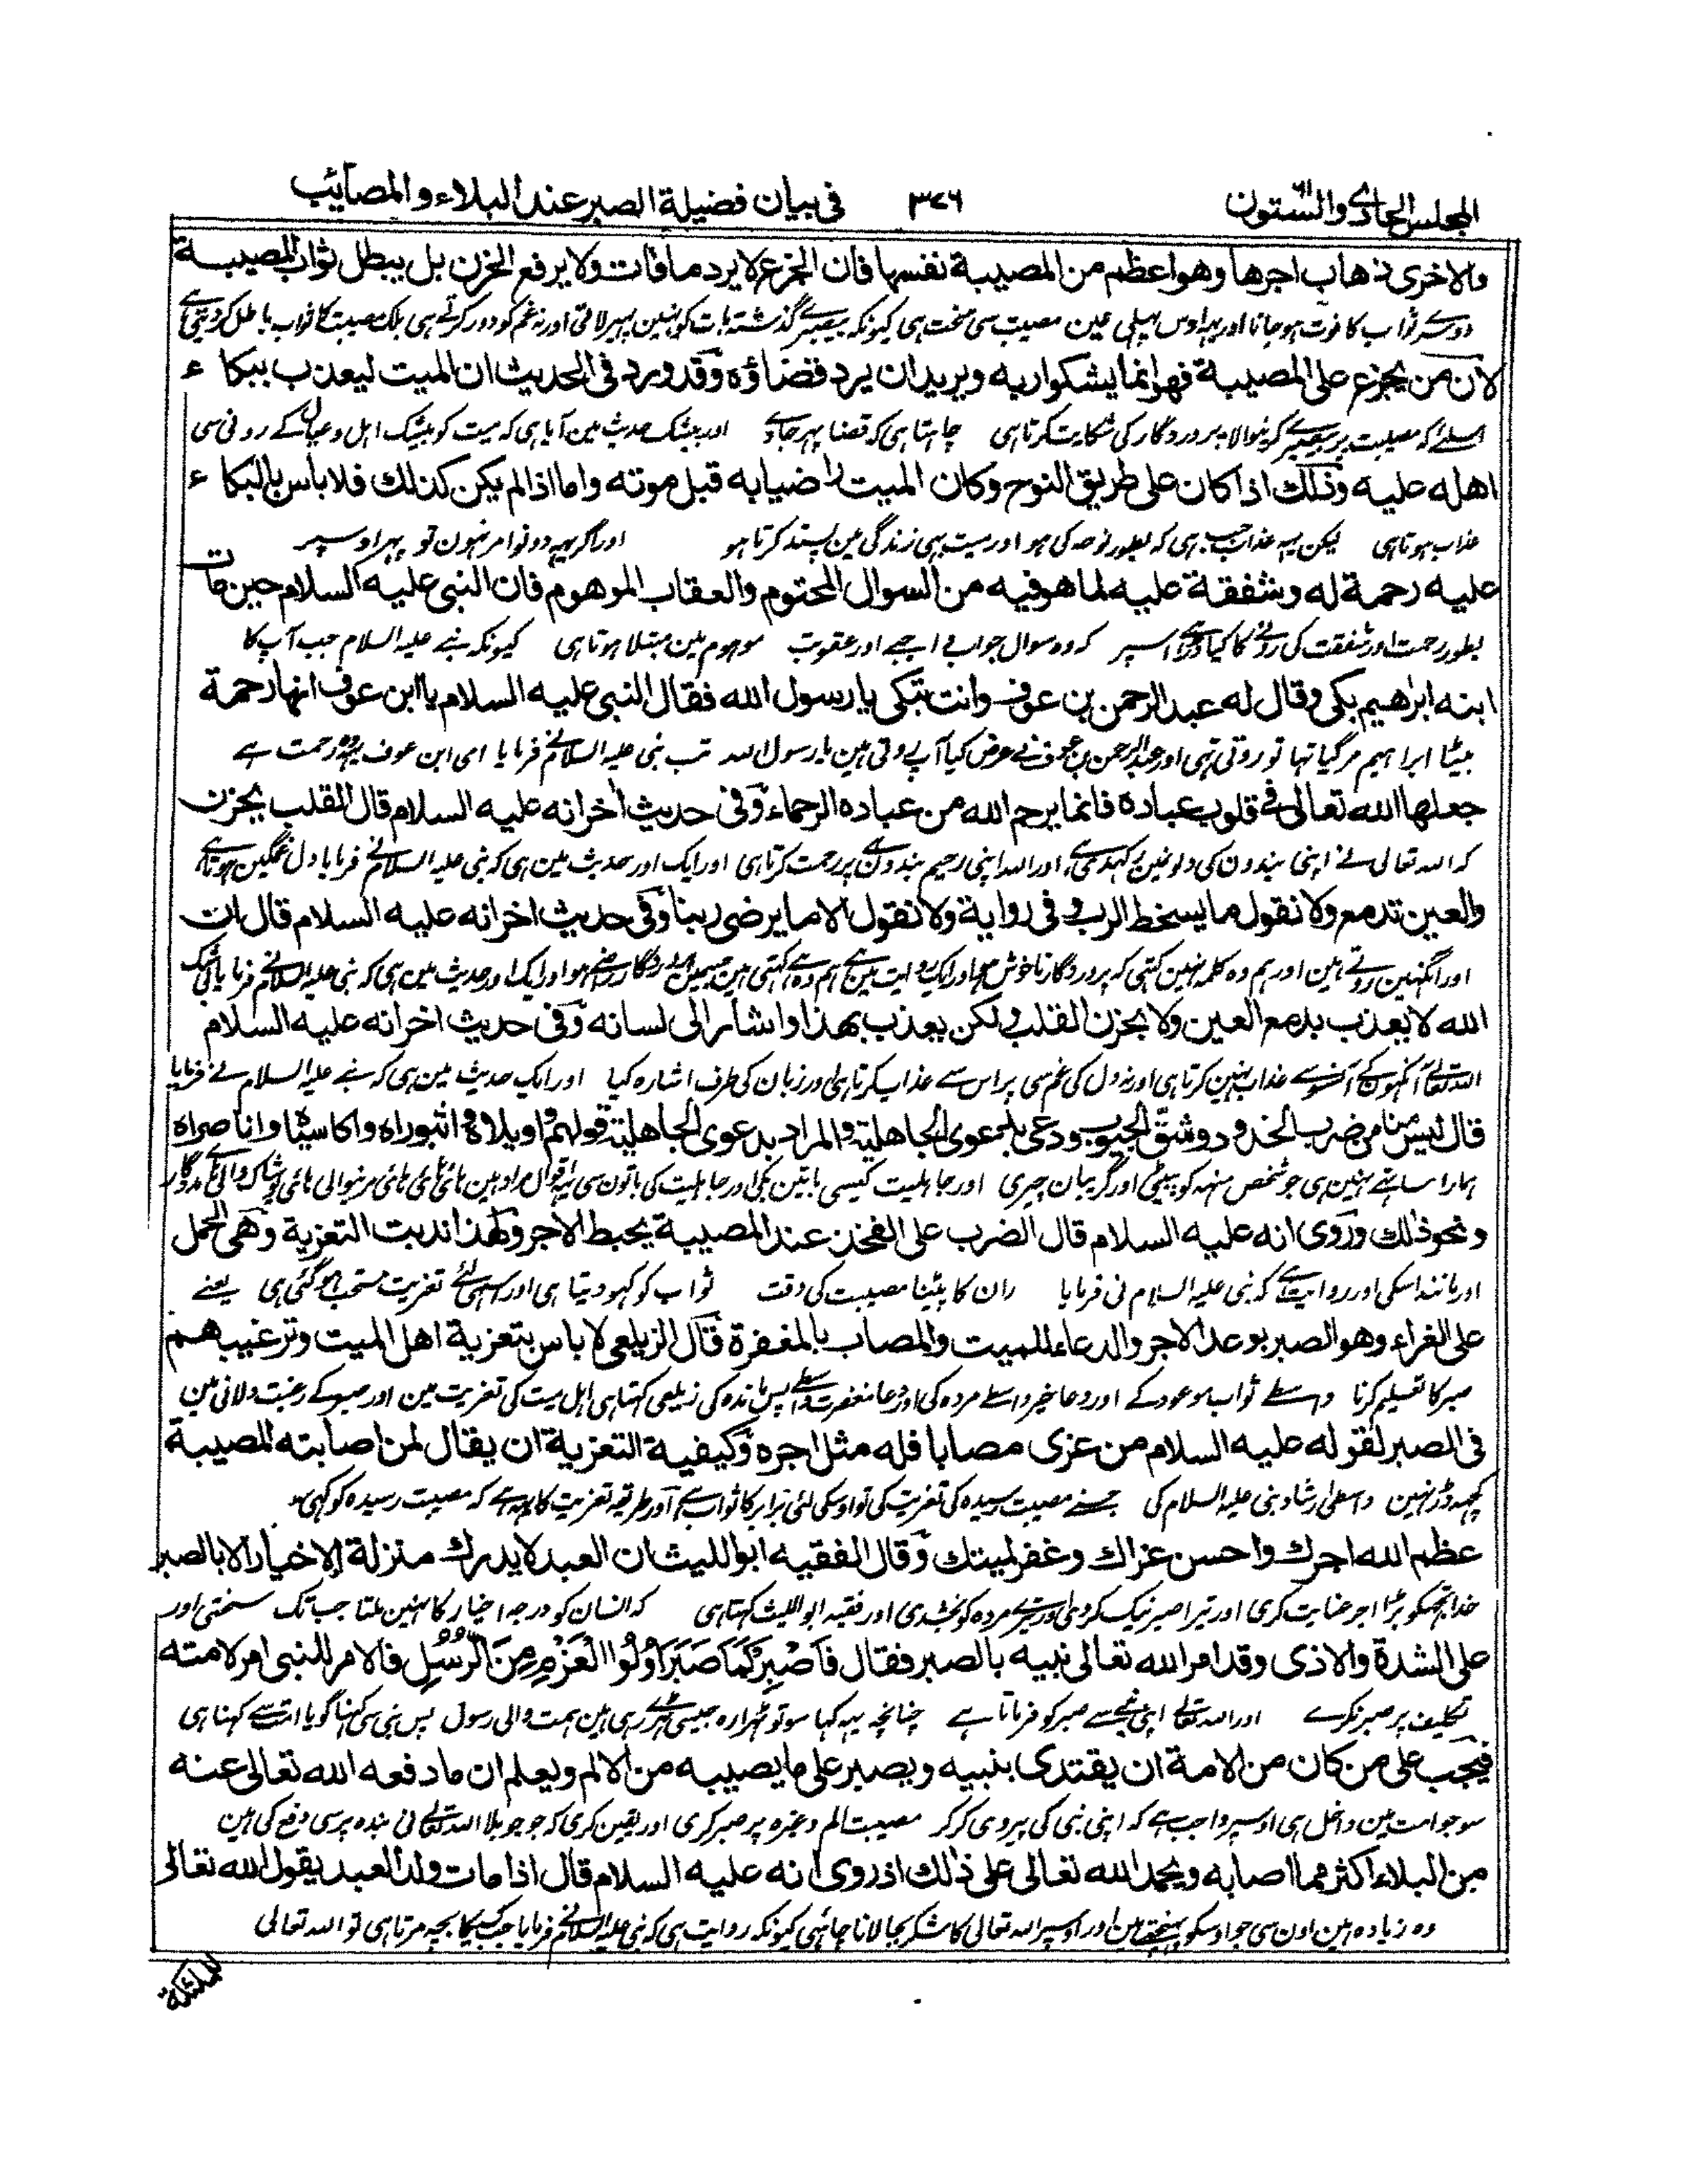 المجلس الحادي والستون ٣٧٦ في بيان فضيلة الصبر عند البلاء والمصائب
والاخرى ذهاب اجرها وهو اعظم من المصيبة نفسها فان الجزع لا يرد ما فات ولا يرفع الحزن بل يبطل ثواب المصيبة
دوسرے ثواب کا فوت ہو جانا اور یہ اوس پہلی عین مصیبت سی سخت ہی کیونکہ بیصبرے گذشتہ بات کو نہین پہیر لاتی اور نہ غم کو دور کرتے ہی بلکہ مصیبت کا ثواب باطل کر دیتی ہے
لان من يجزع على المصيبة فهو انما يشكو ربه ويريد ان يرد قضاؤه وقد ورد في الحديث ان الميت ليعذب ببكاء
اسلئے کہ مصیبت پر بیصبرے کرنیوالا پروردگار کی شکایت کرتا ہی چاہتا ہی کہ قضا پہر جاوے اور بیشک حدیث مین آیا ہی کہ میت کو بیشک اہل وعیال کے رونی سی
اهله عليه وذلك اذا كان على طريق النوح وكان الميت راضيا به قبل موته واما اذا لم يكن كذلك فلا باس بالبكاء
عذاب ہوتا ہی لیکن یہ عذاب جب ہی کہ بطور نوحہ کی ہو اور میت بہی زندگی مین پسند کرتا ہو اور اگر یہہ دونو امر نہون تو پہر اوسپر
عليه رحمة له وشفقة عليه لما هو فيه من السوال المحتوم والعقاب الموهوم فان النبي عليه السلام حين مات
بطور رحمت اور شفقت کی رونے کا کیا ڈر ہے اسپر کہ وہ سوال جواب واجبے اور عقوبت موہوم مین مبتلا ہوتا ہی کیونکہ نبے علیہ السلام جب آپ کا
ابنه ابراهيم بكى وقال له عبد الرحمن بن عوف وانت تبكي يا رسول الله فقال النبي عليه السلام يا ابن عوف انها رحمة
بیٹا ابراہیم مر گیا تہا تو روتی تہی اور عبد الرحمن بن عوف نے عرض کیا آپ روتی ہین یا رسول اللہ تب نبی علیہ السلام نے فرمایا ای ابن عوف یہہ رحمت ہے
جعلها الله تعالى في قلوب عباده فانما يرحم الله من عباده الرحماء وفي حديث اخر انه عليه السلام قال القلب يحزن
کہ اللہ تعالی نے اپنی بندون کی دلونمین رکہدی ہے اور اللہ اپنی رحیم بندون پر رحمت کرتا ہی اور ایک اور حدیث مین ہی کہ نبی علیہ السلام نے فرمایا دل غمگین ہوتا ہے
والعين تدمع ولا نقول ما يسخط الرب وفي رواية ولا نقول الا ما يرضى ربنا وفي حديث اخر انه عليه السلام قال ان
اور انکہین روتے ہین اور ہم وہ کلمہ نہین کہتی کہ پروردگار ناخوش ہو اور ایک روایت مین ہے ہم وہ ہے کہتی ہین جسمین پروردگار راضے ہو اور ایک اور حدیث مین ہی کہ نبی علیہ السلام نے فرمایا بیشک
الله لا يعذب بدمع العين ولا بحزن القلب ولكن يعذب بهذا واشار الى لسانه وفي حديث اخر انه عليه السلام
اللہ تعالے آنکہون کے آنسوے عذاب نہین کرتا ہی اور نہ دل کی غم سی پر اس سے عذاب کرتا ہی اور زبان کی طرف اشارہ کیا اور ایک حدیث مین ہی کہ نبے علیہ السلام نے فرمایا
قال ليس منا من ضرب الخدود وشق الجيوب ودعى بدعوى الجاهلية والمراد بدعوى الجاهلية قولهم واويلاه واثبوراه واكاسياه واناصراه
ہمارا ساتہے نہین ہی جو شخص منہہ کو پیٹی اور گریبان چیری اور جاہلیت کیسی باتین بکی اور جاہلیت کی باتون سی یہ اقوال مراد ہین
ونحو ذلك وروى انه عليه السلام قال الضرب على الفخذ عند المصيبة يحبط الاجر ولهذا ندبت التعزية وهي الحمل
اور مانند اسکی اور روایت ہے کہ نبی علیہ السلام نی فرمایا ران کا پیٹنا مصیبت کی وقت ثواب کو کہو دیتا ہی اور اسی لئے تعزیت مستحب ہو گئی ہی یعنے
على العزاء وهو الصبر بوعد الاجر والدعاء للميت والمصاب بالمغفرة قال الزيلعي لا باس بتعزية اهل الميت وترغيبهم
صبر کا تسلیم کرنا واسطے ثواب موعود کے اور دعا خیر واسطے مردہ کی اور دعا مغفرت واسطے پس ماندہ کی زیلعی کہتا ہی اہل میت کی تعزیت مین اور صبر کے رغبت دلانی مین
في الصبر لقوله عليه السلام من عزى مصابا فله مثل اجره وكيفية التعزية ان يقال لمن اصابته المصيبة
کچہہ ڈر نہین واسطی ارشاد نبی علیہ السلام کی جسنے مصیبت رسیدہ کی تعزیت کی تو اوسکی لئی برابر کا ثواب ہے اور طریقہ تعزیت کا یہہ ہے کہ مصیبت رسیدہ کو کہی
عظم الله اجرك واحسن عزاك وغفر لميتك وقال الفقيه ابو الليث ان العبد لا يدرك منزلة الاخيار الا بالصبر
خدا تجہکو بڑا اجر عنایت کری اور تیرا صبر نیک کردی اور تیرے مردہ کو بخشدی اور فقیہ ابو اللیث کہتا ہی کہ انسان کو درجہ اخیار کا نہین ملتا جب تک سختی اور
على الشدة والاذى وقد امر الله تعالى نبيه بالصبر فقال فَاصْبِرْ كَمَا صَبَرَ اُولُوا الْعَزْمِ مِنَ الرُّسُلِ فالامر للنبي امر لامته
تکلیف پر صبر نکرے اور اللہ تعالے اپنی نبی سے صبر کو فرماتا ہے چنانچہ یہہ کہا سو تو ٹہرا رہ جیسی ٹہرے رہی ہین ہمت والی رسول پس نبی سی کہنا گویا امت سے کہنا ہی
فيجب على من كان من الامة ان يقتدى بنبيه ويصبر على ما يصيبه من الالم ويعلم ان ما دفعه الله تعالى عنه
سو جو امت مین داخل ہی اوسپر واجب ہے کہ اپنی نبی کی پیروی کر کر مصیبت الم وغیرہ پر صبر کری اور یقین کری کہ جو جو بلا اللہ تعالے نی بندہ پر سی دفع کی ہین
من البلاء اكثر مما اصابه ويحمد الله تعالى على ذلك اذ روى انه عليه السلام قال اذا مات ولد العبد يقول الله تعالى
وہ زیادہ ہین اون سی جو اوسکو پہنچتے ہین اور اوسپر اللہ تعالی کا شکر بجا لانا چاہئی کیونکہ روایت ہی کہ نبی علیہ السلام نے فرمایا جب کسیکا بچہ مرتا ہی تو اللہ تعالی
للملئكة